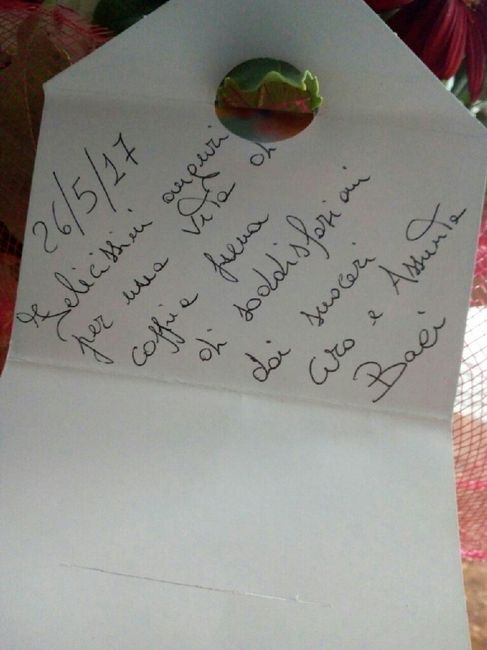 26/5/17
Felicissimi auguri
per una vita di
coppia piena
di soddisfazioni
dai suoceri
Ciro e Assunta
Baci